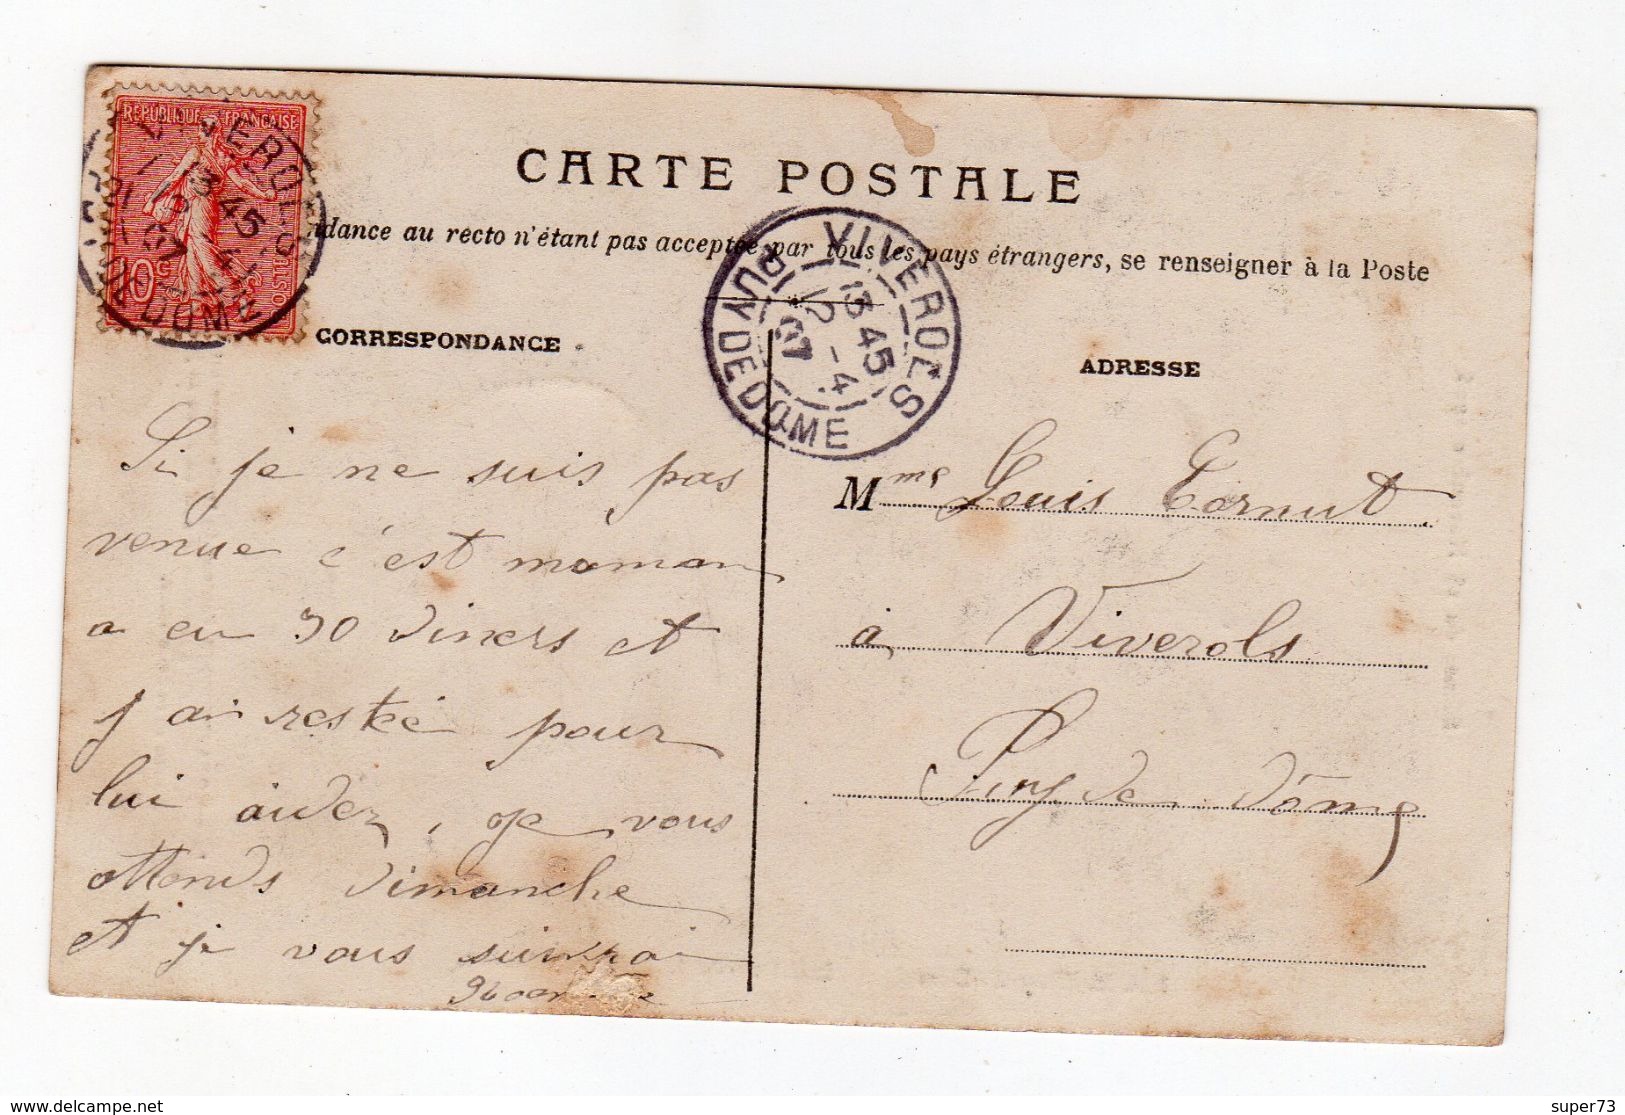 REPUBLIQUE FRANÇAISE
10c POSTES
VIVEROLS
13 45
12 -4
07
PUY DE DOME
CARTE POSTALE
dance au recto n'étant pas acceptée par tous les pays étrangers, se renseigner à la Poste
VIVEROLS
13 45
12 -4
07
PUY DE DOME
CORRESPONDANCE
ADRESSE
Si je ne suis pas
venue c'est maman
a eu 30 diners et
j'ai resté pour
lui aider, je vous
attends dimanche
et je vous suivrai
Mme Louis Cornut
à Viverols
Puy de Dôme
www.delcampe.net
super73